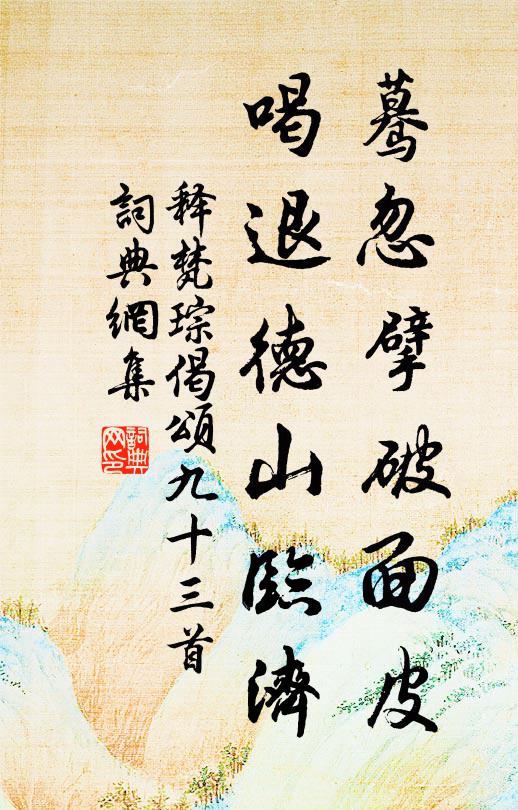 驀忽擘破面皮
喝退德山臨濟
释梵琮偈颂九十三首
詞典網集
詞典網印